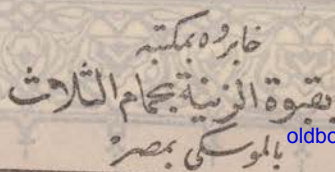 خابروه بمكتبه
بقبوة الزينية بحمام الثلاث
بالموسكى بمصر
oldbo